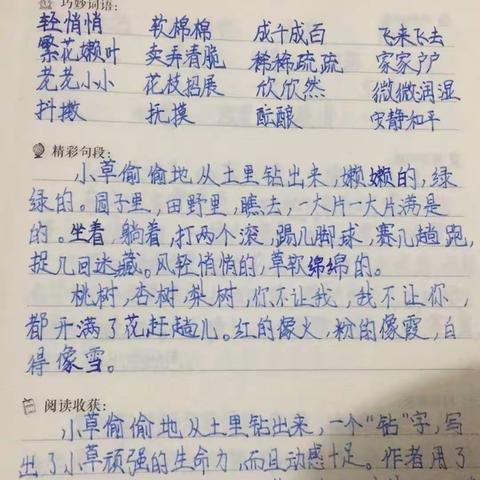 巧妙词语:
轻悄悄 软棉棉 成千成百 飞来飞去
繁花嫩叶 卖弄清脆 稀稀疏疏 家家户户
老老小小 花枝招展 欣欣然 微微润湿
抖擞 抚摸 酝酿 安静和平
精彩句段:
小草偷偷地从土里钻出来,嫩嫩的,绿
绿的。园子里,田野里,瞧去,一大片一大片满是
的。坐着,躺着,打两个滚,踢几脚球,赛几趟跑,
捉几回迷藏。风轻悄悄的,草软绵绵的。
桃树,杏树,梨树,你不让我,我不让你,
都开满了花赶趟儿。红的像火,粉的像霞,白
得像雪。
阅读收获:
小草偷偷地从土里钻出来,一个“钻”字,写
出了小草顽强的生命力,而且动感十足。作者用了